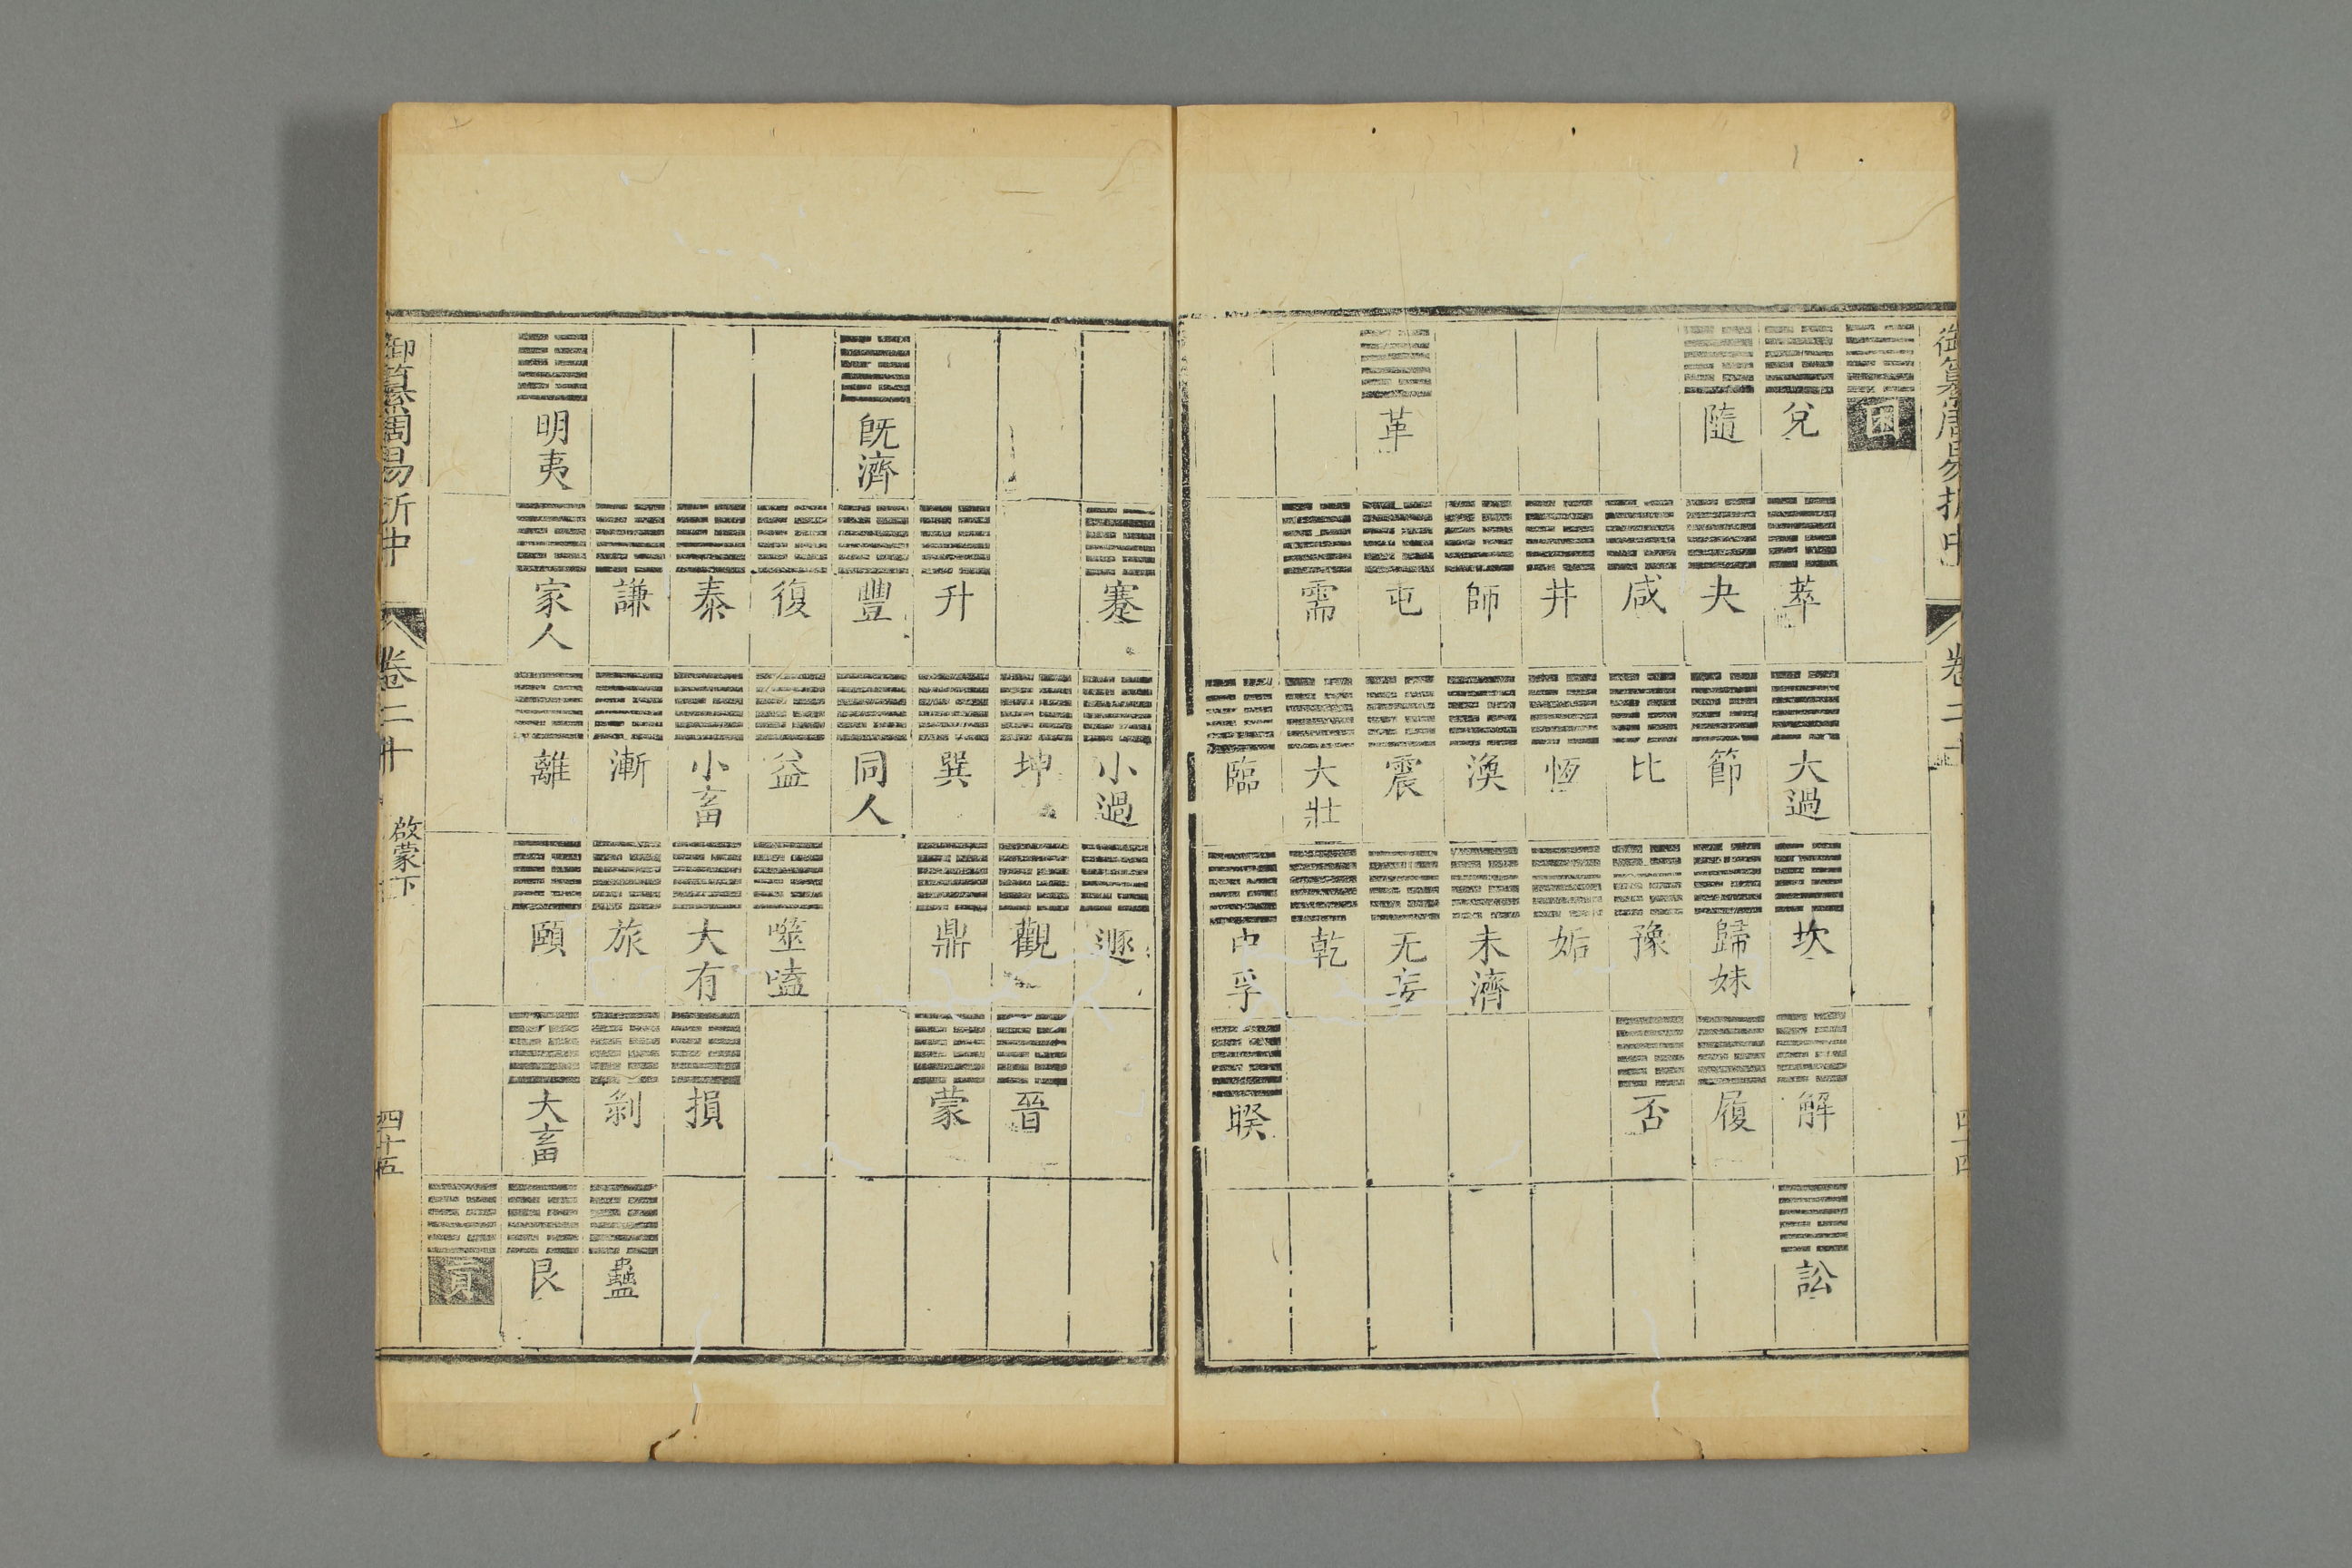 御纂周易折中 卷二十
困
兌 萃 大過 坎 解 訟
隨 夬 節 歸妹 履
咸 比 豫 否
井 恆 姤
師 渙 未濟
革 屯 震 无妄
需 大壯 乾
臨 中孚 睽
蹇 小過 遯
坤 觀 晉
升 巽 鼎 蒙
旣濟 豐 同人
復 益 噬嗑
泰 小畜 大有 損
謙 漸 旅 剝 蠱
明夷 家人 離 頤 大畜 艮
賁
御纂周易折中 卷二十 啟蒙下 四十五